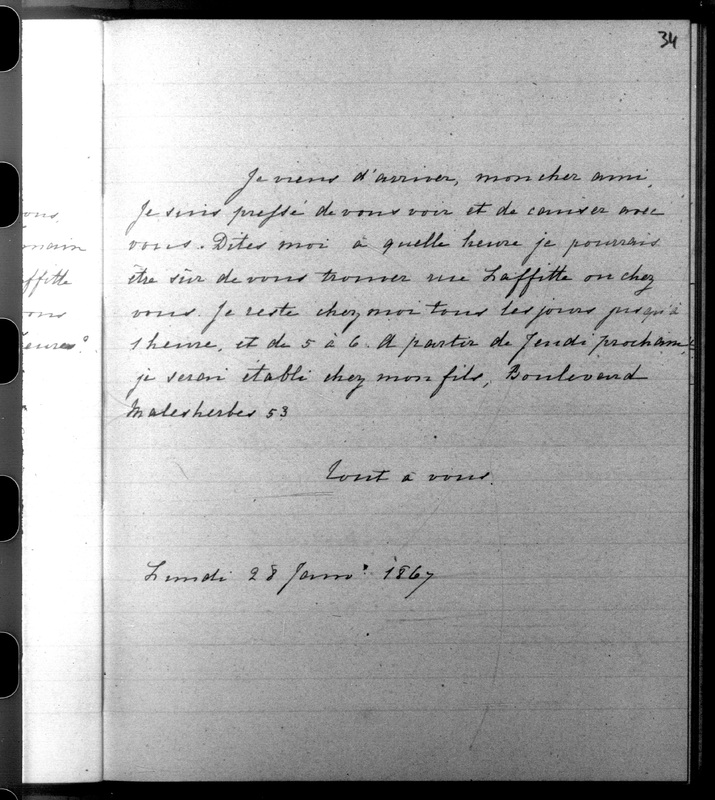 34
Je viens d'arriver, mon cher ami,
Je suis pressé de vous voir et de causer avec
vous. Dites moi à quelle heure je pourrais
être sûr de vous trouver rue Laffitte ou chez
vous. Je reste chez moi tous les jours jusqu'à
1 heure, et de 5 à 6. A partir de Jeudi prochain,
je serai établi chez mon fils, Boulevard
Malesherbes 53
Tout à vous.
Lundi 28 Janv. 1867